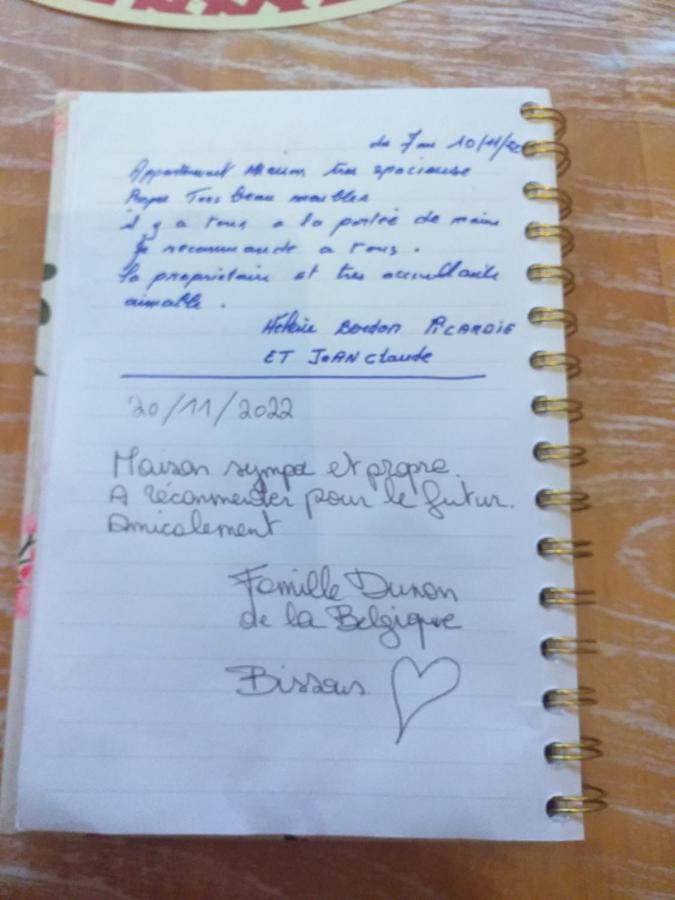 du 7 au 10/11/
Appartement très spacieuse
Propre Tres beau meubles
il y a tous a la portée de mains
Je recommande a tous.
la propriétaire et tres accuillante
aimable.
PICARDIE
ET JEAN Claude
20/11/2022
Maison sympa et propre.
A récommender pour le futur.
Amicalement
Famille Duron
de la Belgique
Bissous